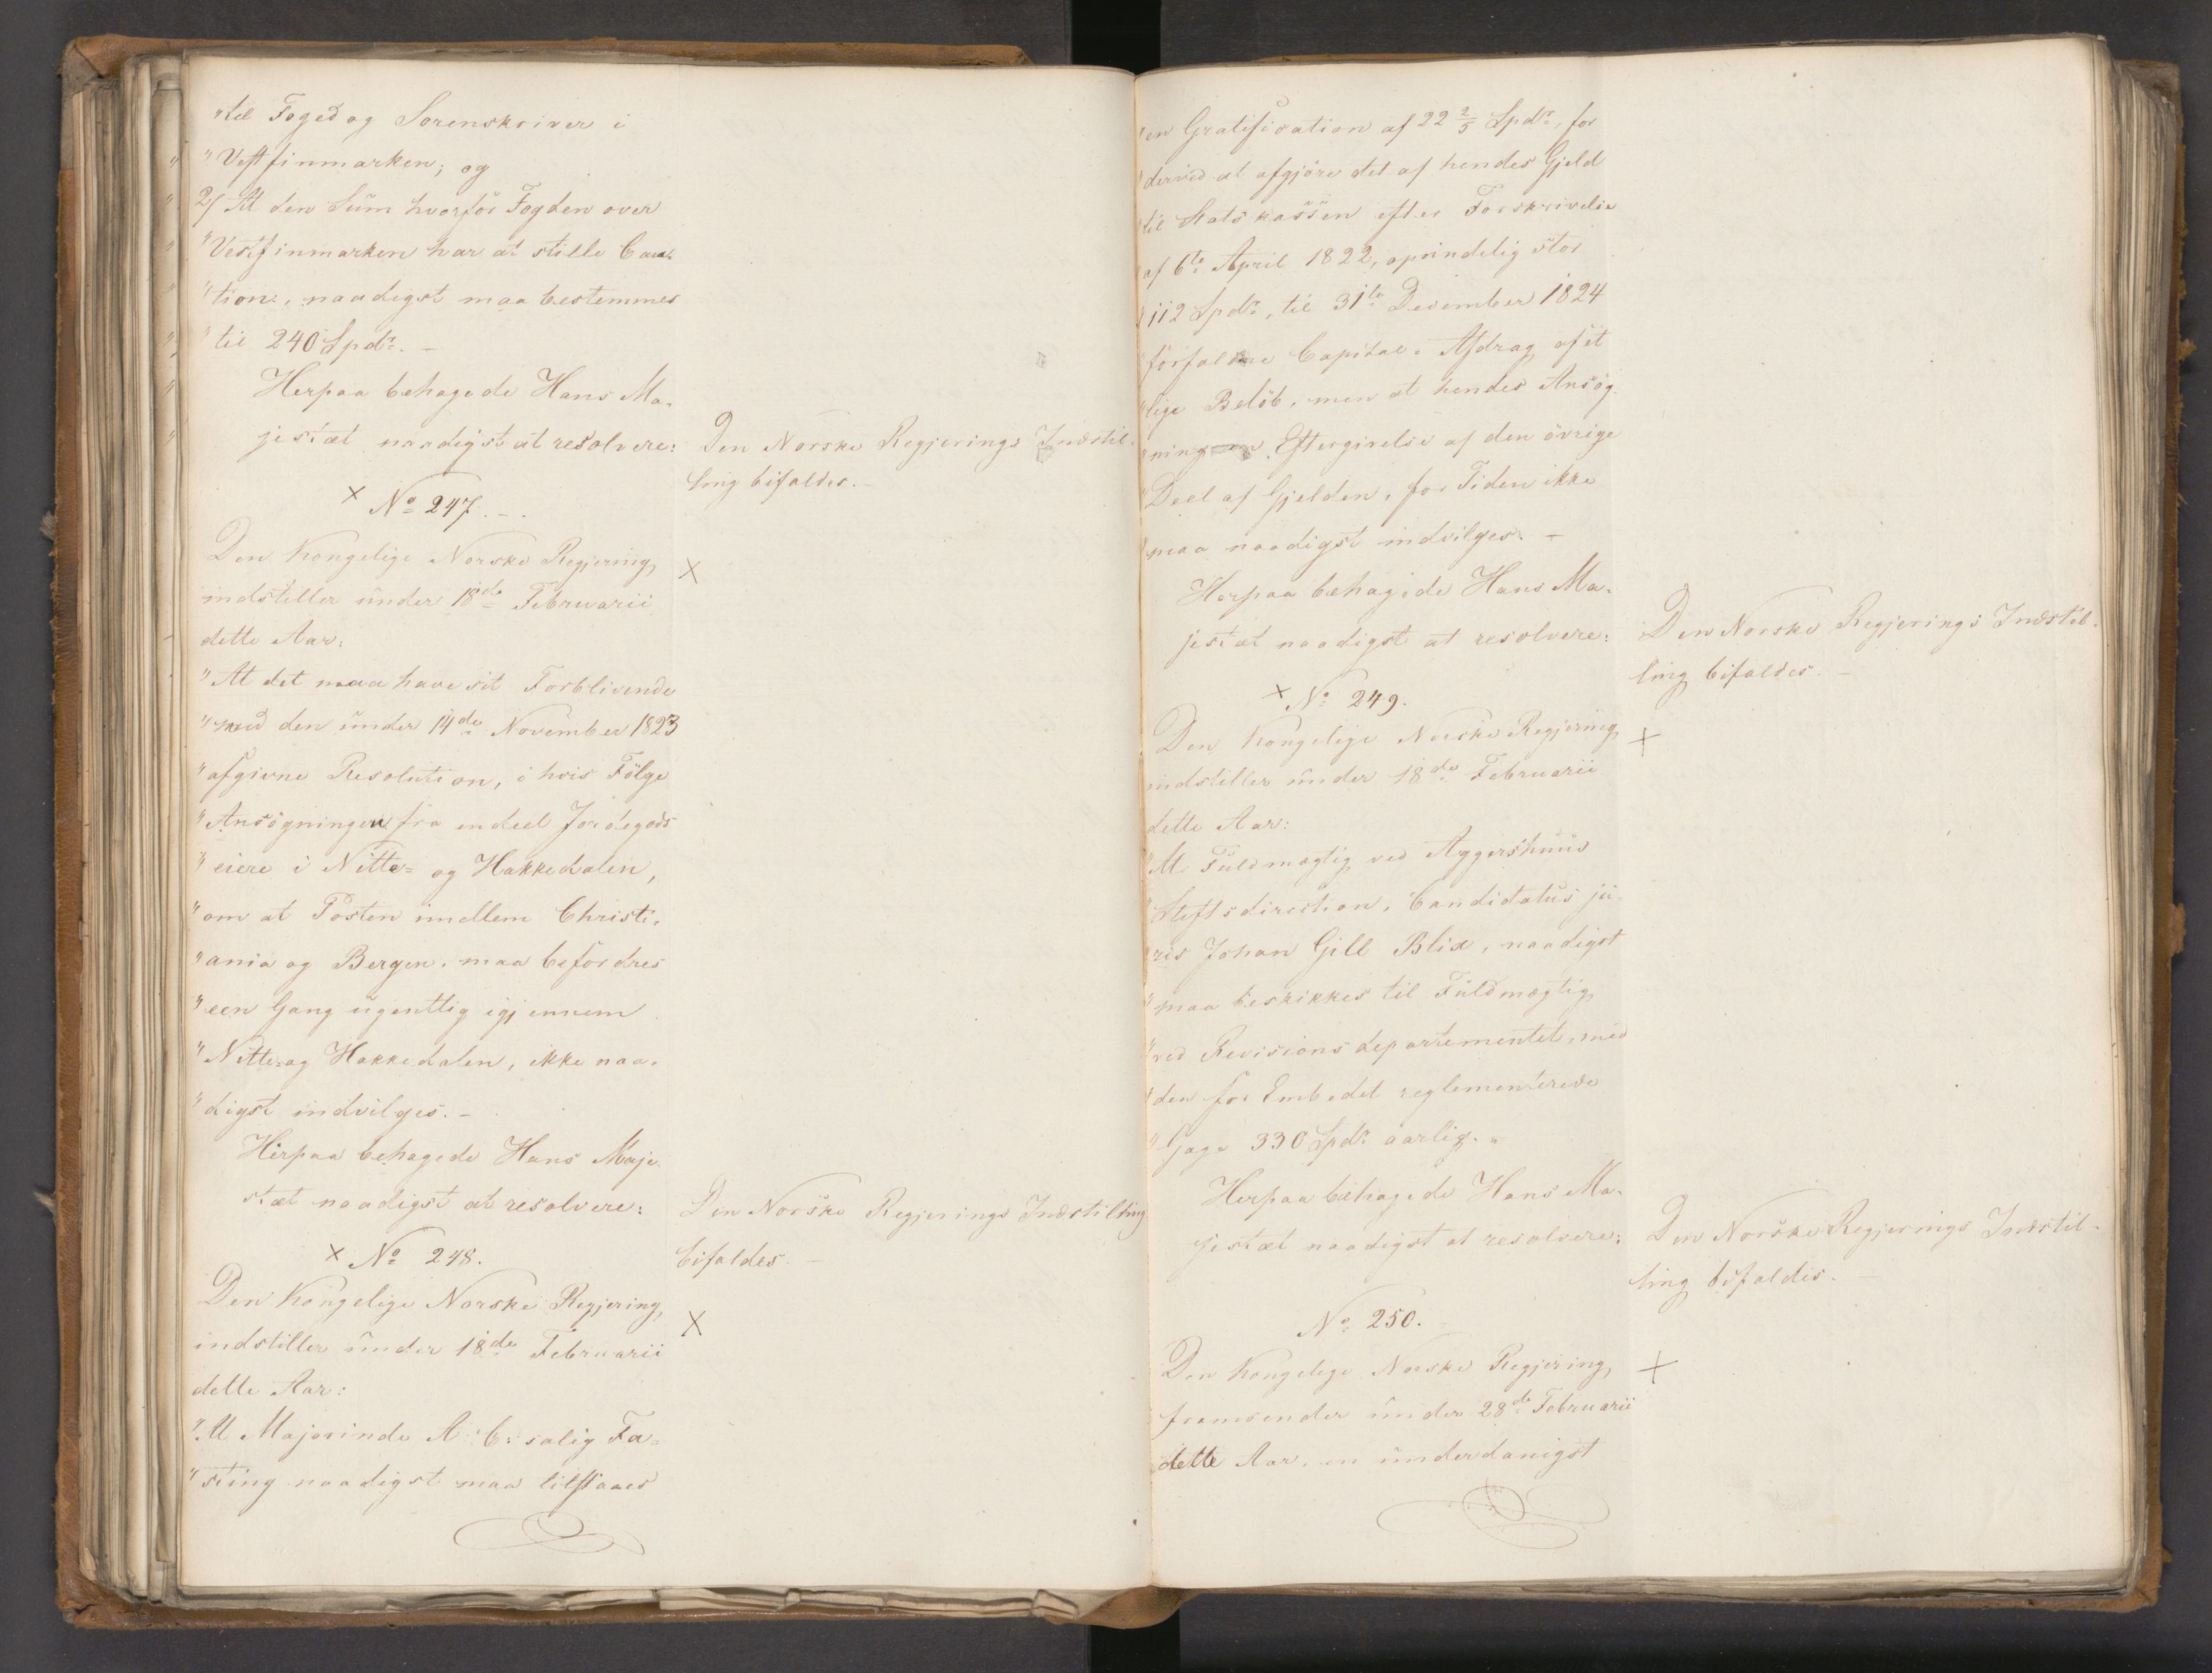 "til Foged og Sorenskriver i
"Vestfinmarken; og
2/ At den Sum hvorfor Fogden over
"Vestfinmarken har at stille Cau-
"tion, naadigst maa bestemmes
"til 240 Spdr. –
Herpaa behagede Hans Ma-
jestæt naadigst at resolvere:
Den Norske Regjerings Indstil-
ling bifaldes. –
× No 247. –
Den Kongelige Norske Regjering,
×
indstiller under 18de Februarii
dette Aar:
"At det maa have sit Forblivende
"med den under 14de November 1823
"afgivne Resolution, i hvis Fölge
"Ansögningen fra endeel Jordegods
"eiere i Nitte- og Hakkedalen,
"om at Posten imellem Christi-
"ania og Bergen, maa befordres
"een Gang ugentlig igjennem
"Nitte- og Hakkedalen, ikke naa-
"digst indvilges. –
Herpaa behagede Hans Maje-
stæt naadigst at resolvere:
Den Norske Regjerings Indstilling
bifaldes. –
× No 248.
Den Kongelige Norske Regjering,
×
indstiller under 18de Februarii
dette Aar:
"At Majorinde A: C: salig Fa-
"sting naadigst maa tilstaaes
"en Gratification af 22 2/5 Spdr, for
"derved at afgjöre det af hendes Gjeld
"til Statskassen efter Forskrivelse
"af 6te April 1822, oprindelig stor
"112 Spdr, til 31te December 1824
"forfaldne Capital-Afdrag af it
"lige Belöb, men at hendes Ansög-
"ning om Eftergivelse af den övrige
"Deel af Gjelden, for Tiden ikke
"maa naadigst indvilges. –
Herpaa behagede Hans Ma-
jestæt naadigst at resolvere:
Den Norske Regjerings Indstil-
ling bifaldes. –
× No 249.
Den Kongelige Norske Regjering,
×
indstiller under 18de Februarii
dette Aar:
"At Fuldmægtig ved Aggershuus
"Stiftsdirection, Candidatus ju-
"ris Johan Gill Blix, naadigst
"maa beskikkes til Fuldmægtig
"ved Revisionsdepartementet, med
"den for Embedet reglementerede
"Gage 330 Spdr. aarlig. "
Herpaa behagede Hans Ma-
jestæt naadigst at resolvere:
Den Norske Regjerings Indstil-
ling bifaldes. –
No 250.
Den Kongelige Norske Regjering,
×
fremsender under 28de Februarii
dette Aar, en underdanigst